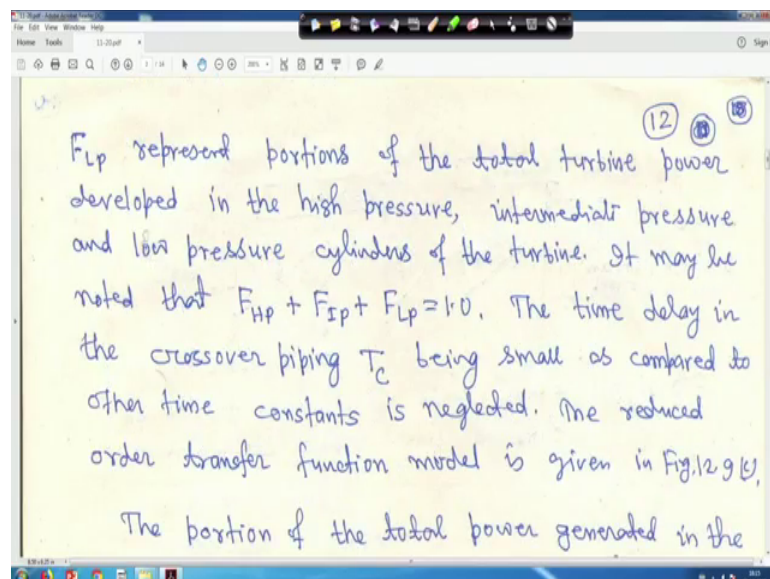 11-20.pdf - Adobe Acrobat Reader DC
File Edit View Window Help
Home Tools 11-20.pdf × Sign
1 / 14 200%
12
F_LP represend portions of the total turbine power
developed in the high pressure, intermediati pressure
and low pressure cylinders of the turbine. It may be
noted that F_HP + F_IP + F_LP = 1.0. The time delay in
the crossover piping T_c being small as compared to
other time constants is neglected. The reduced
order transfer function model is given in Fig.12.9(c).
The portion of the total power generated in the